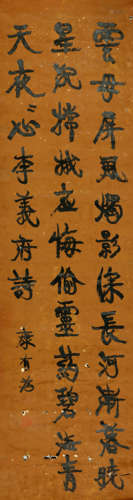 雲母屏風燭影深長河漸落曉
星沉嫦娥應悔偷靈药碧海青
天夜〻心李義府詩
康有為